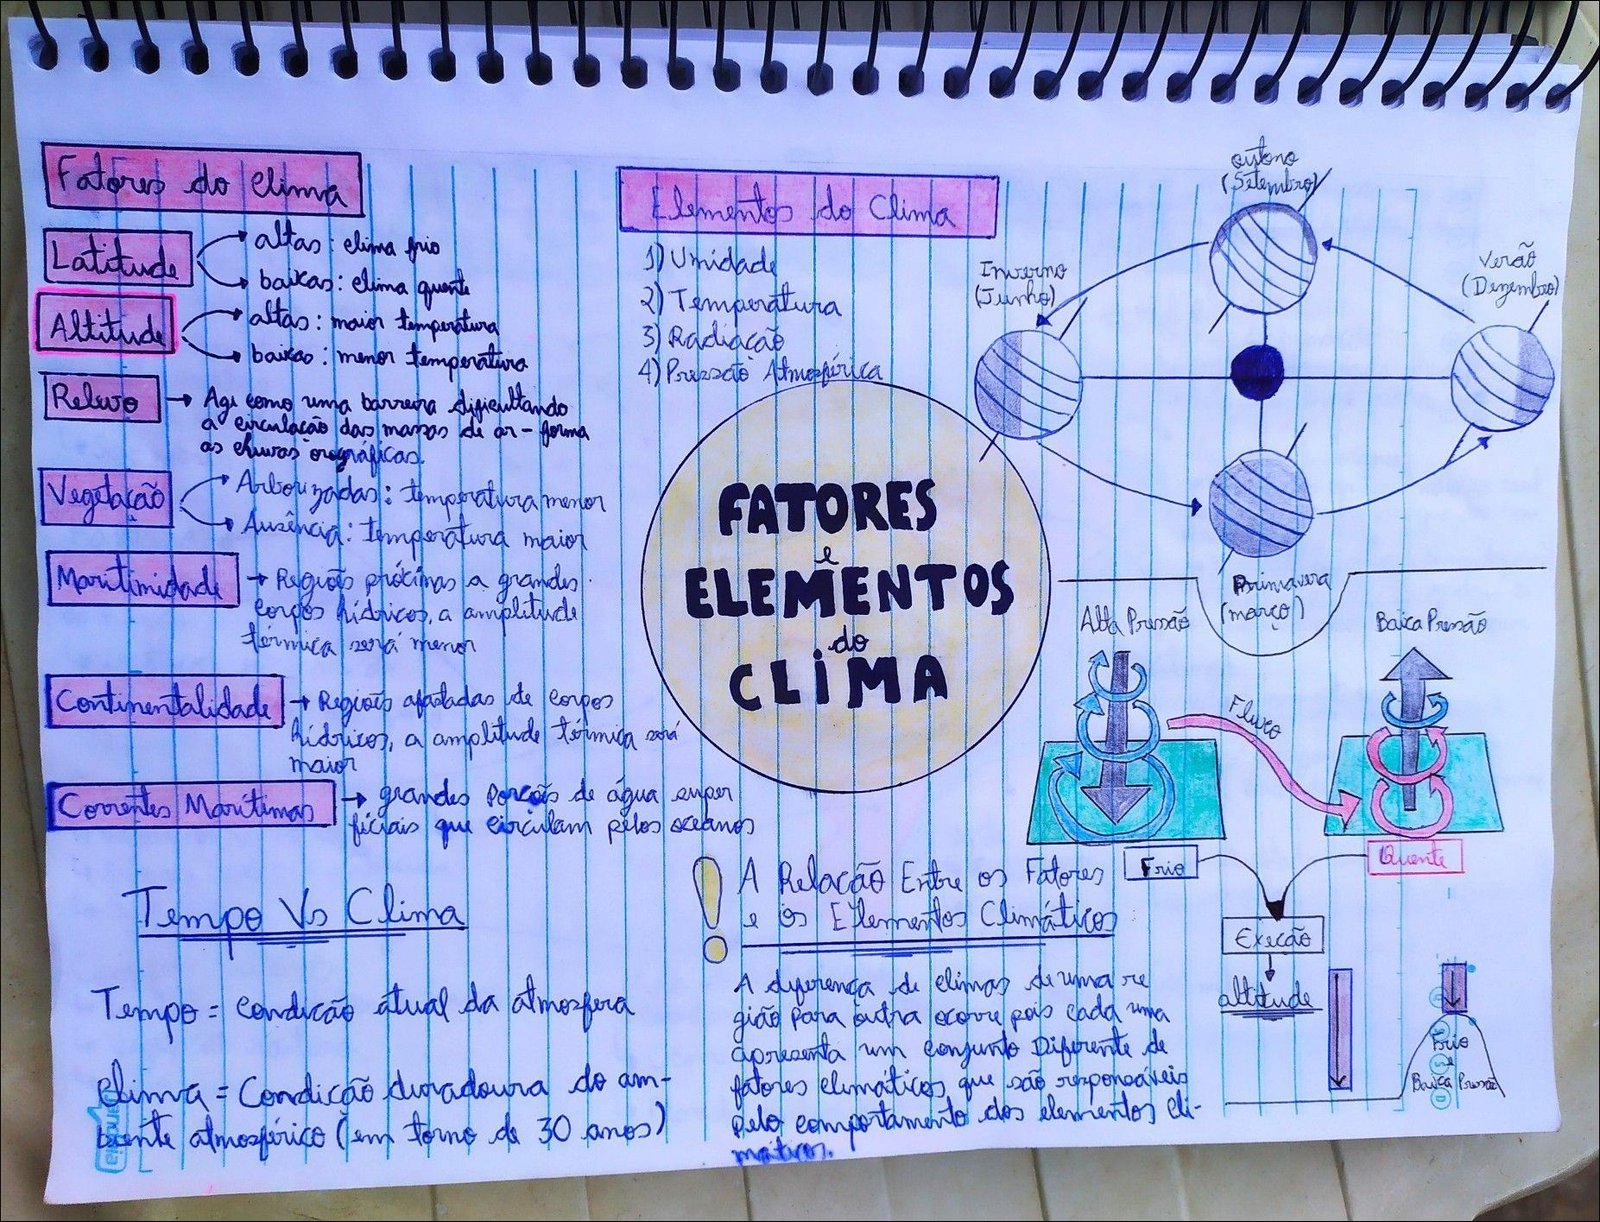 Fatores do Clima
Latitude
altas: clima frio
baixas: clima quente
Altitude
altas: maior temperatura
baixas: menor temperatura
Relevo
Agi como uma barreira dificultando
a circulação das massas de ar - forma
as chuvas orográficas.
Vegetação
Arborizadas: temperatura menor
Ausência: temperatura maior
Maritimidade
Regiões próximas a grandes
corpos hídricos, a amplitude
térmica será menor
Continentalidade
Regiões afastadas de corpos
hídricos, a amplitude térmica será
maior
Correntes Marítimas
grandes porções de água super
ficiais que circulam pelos oceanos
Tempo Vs Clima
Tempo = condição atual da atmosfera
Clima = Condição duradoura do am-
biente atmosférico (em torno de 30 anos)
Elementos do Clima
1) Umidade
2) Temperatura
3) Radiação
4) Pressão Atmosférica
FATORES
e
ELEMENTOS
do
CLIMA
! A Relação Entre os Fatores
e os Elementos Climáticos
A diferença de climas de uma re
gião para outra ocorre pois cada uma
apresenta um conjunto Diferente de
fatores climáticos que são responsáveis
pelo comportamento dos elementos cli-
máticos.
outono
(Setembro)
Inverno
(Junho)
Verão
(Dezembro)
Primavera
(março)
Alta Pressão
Baixa Pressão
Fluxo
Frio
Quente
Exeção
altitude
Frio
e
Baixa Pressão